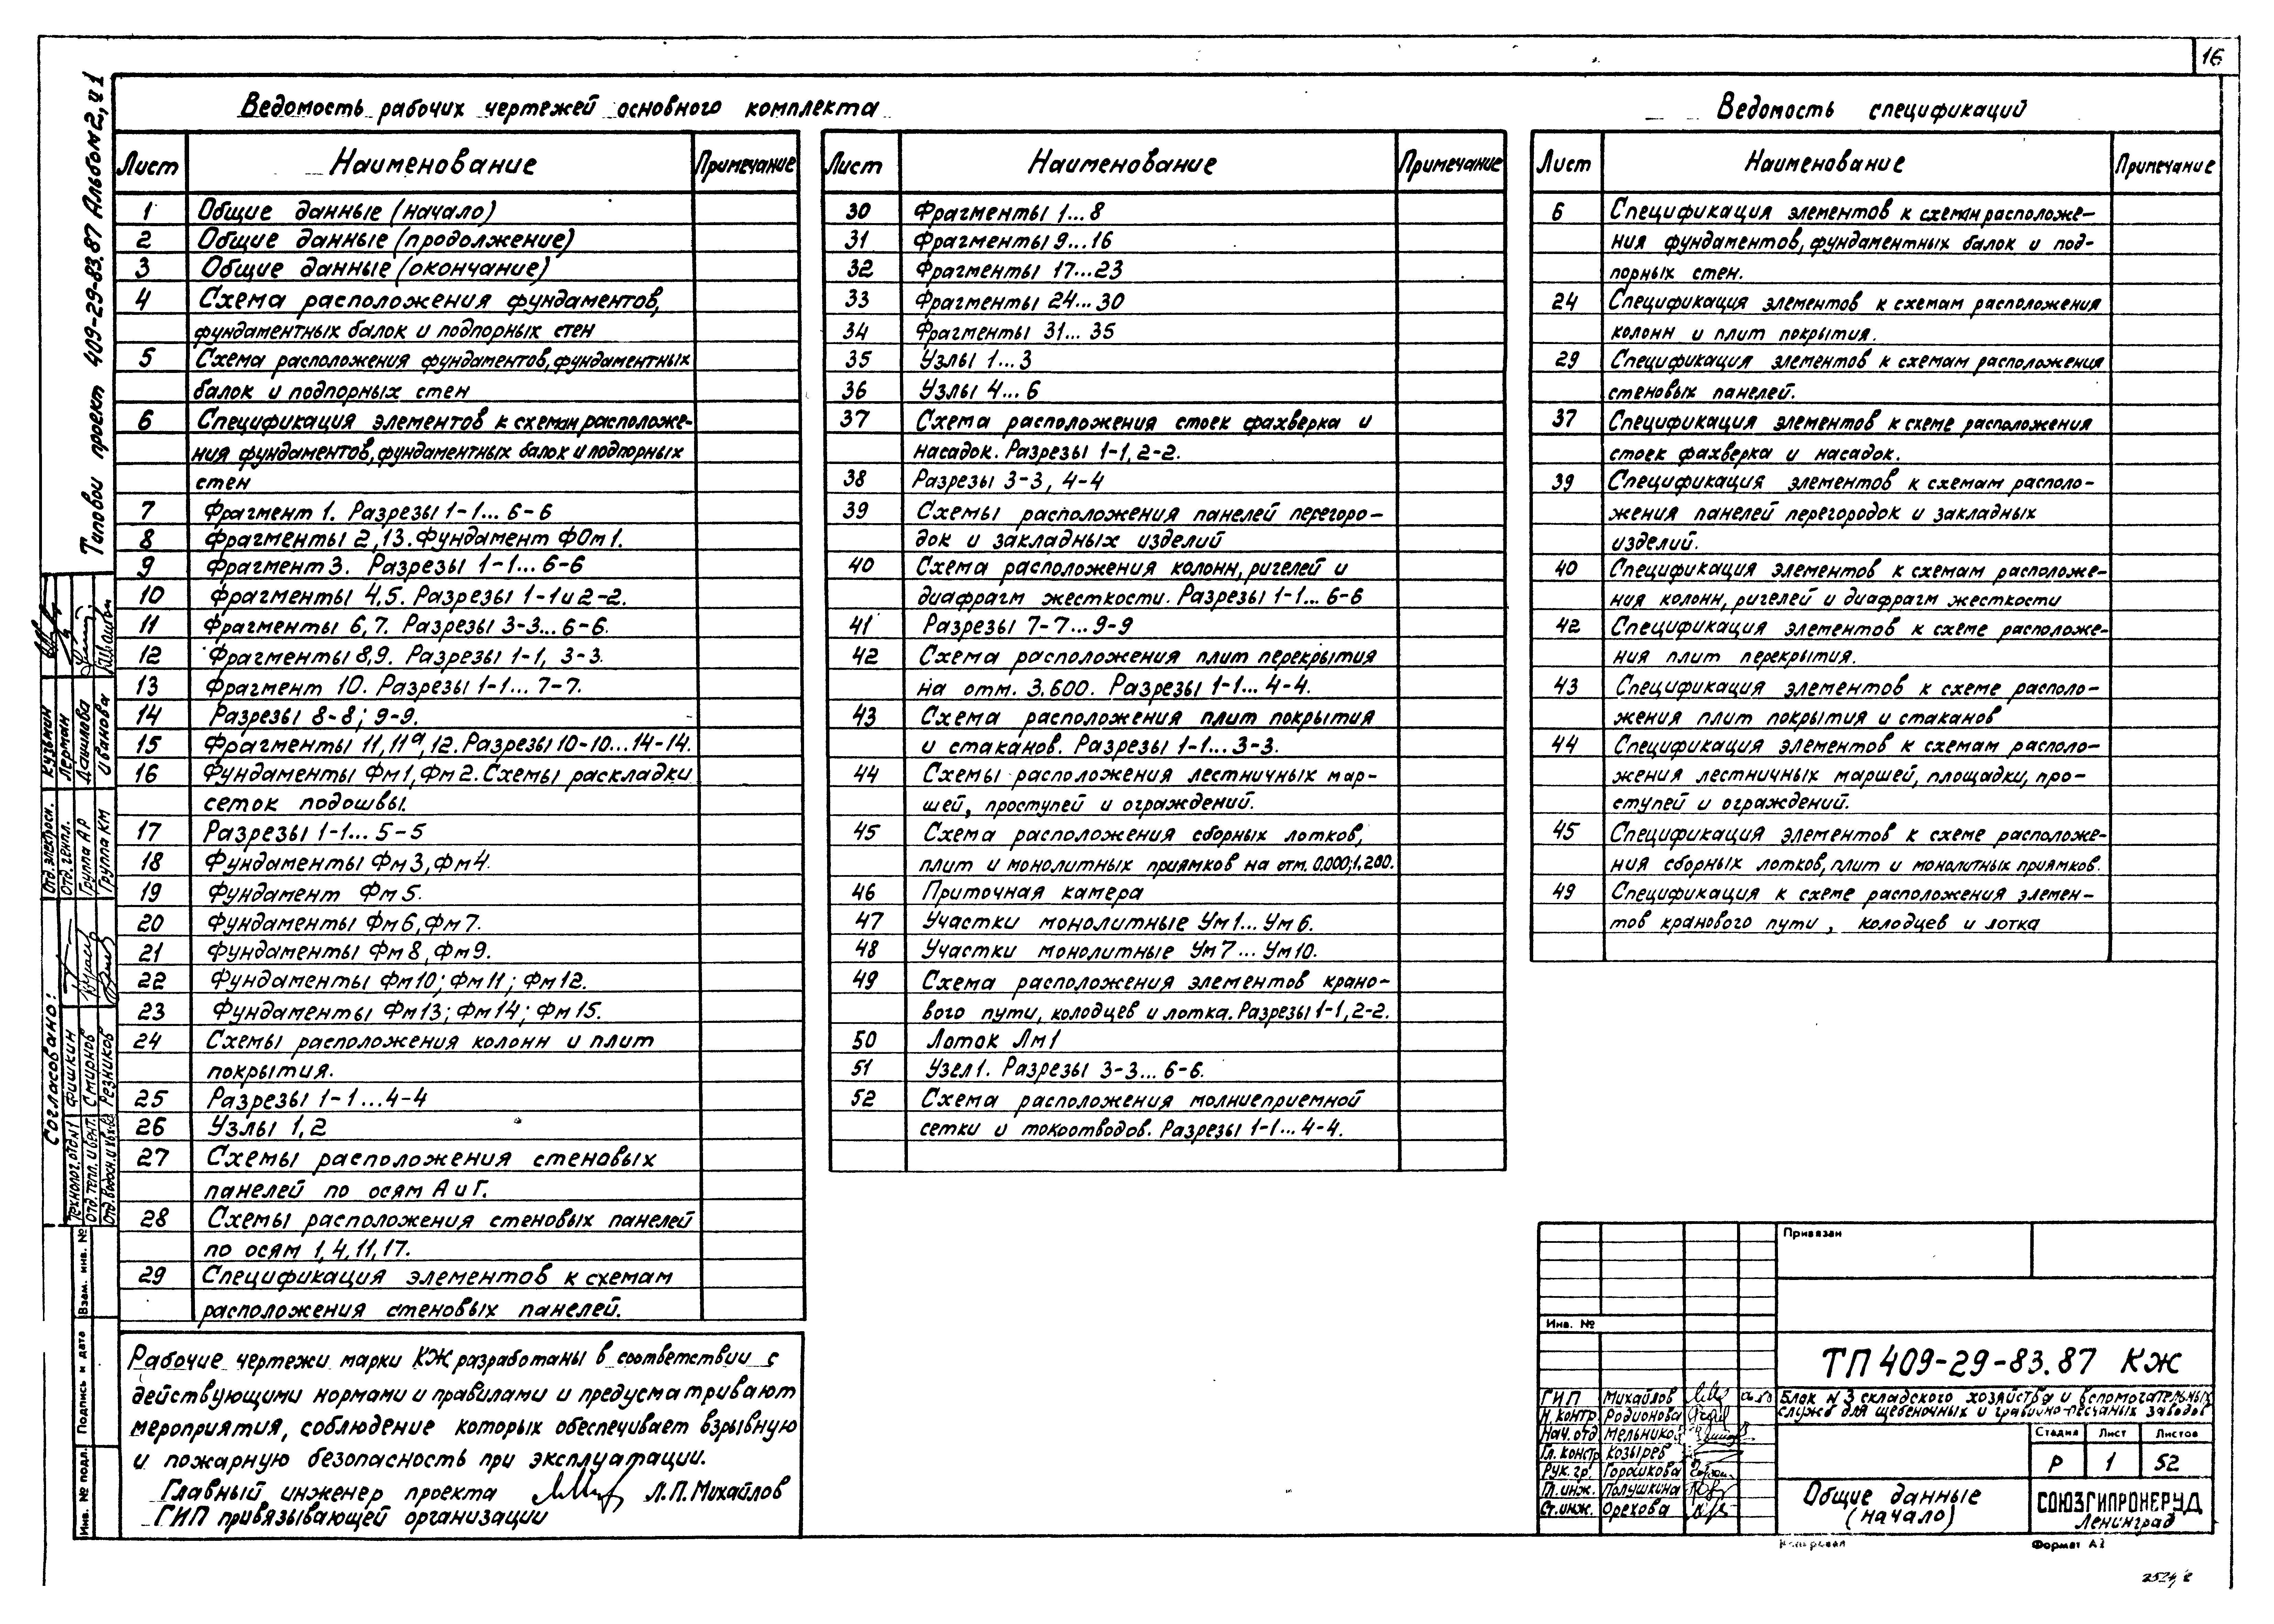 16
Типовой проект 409-29-83.87 Альбом 2, ч1
Ведомость рабочих чертежей основного комплекта
Лист Наименование Примечание
1 Общие данные (начало)
2 Общие данные (продолжение)
3 Общие данные (окончание)
4 Схема расположения фундаментов,
фундаментных балок и подпорных стен
5 Схема расположения фундаментов, фундаментных
балок и подпорных стен
6 Спецификация элементов к схемам расположе-
ния фундаментов, фундаментных балок и подпорных
стен
7 Фрагмент 1. Разрезы 1-1... 6-6
8 Фрагменты 2,13. Фундамент ФОм1.
9 Фрагмент 3. Разрезы 1-1... 6-6
10 Фрагменты 4,5. Разрезы 1-1 и 2-2.
11 Фрагменты 6,7. Разрезы 3-3... 6-6.
12 Фрагменты 8,9. Разрезы 1-1, 3-3.
13 Фрагмент 10. Разрезы 1-1... 7-7.
14 Разрезы 8-8; 9-9.
15 Фрагменты 11, 11ª, 12. Разрезы 10-10... 14-14.
16 Фундаменты Фм1, Фм2. Схемы раскладки
сеток подошвы.
17 Разрезы 1-1... 5-5
18 Фундаменты Фм3, Фм4.
19 Фундамент Фм5.
20 Фундаменты Фм6, Фм7.
21 Фундаменты Фм8, Фм9.
22 Фундаменты Фм10; Фм11; Фм12.
23 Фундаменты Фм13; Фм14; Фм15.
24 Схемы расположения колонн и плит
покрытия.
25 Разрезы 1-1...4-4
26 Узлы 1,2
27 Схемы расположения стеновых
панелей по осям А и Г.
28 Схемы расположения стеновых панелей
по осям 1, 4, 11, 17.
29 Спецификация элементов к схемам
расположения стеновых панелей.
Лист Наименование Примечание
30 Фрагменты 1...8
31 Фрагменты 9...16
32 Фрагменты 17...23
33 Фрагменты 24...30
34 Фрагменты 31...35
35 Узлы 1...3
36 Узлы 4...6
37 Схема расположения стоек фахверка и
насадок. Разрезы 1-1, 2-2.
38 Разрезы 3-3, 4-4
39 Схемы расположения панелей перегоро-
док и закладных изделий
40 Схема расположения колонн, ригелей и
диафрагм жесткости. Разрезы 1-1... 6-6
41 Разрезы 7-7...9-9
42 Схема расположения плит перекрытия
на отм. 3.600. Разрезы 1-1... 4-4.
43 Схема расположения плит покрытия
и стаканов. Разрезы 1-1... 3-3.
44 Схемы расположения лестничных мар-
шей, проступей и ограждений.
45 Схема расположения сборных лотков,
плит и монолитных приямков на отм. 0.000; 1.200.
46 Приточная камера
47 Участки монолитные Ум1... Ум6.
48 Участки монолитные Ум7... Ум10.
49 Схема расположения элементов крано-
вого пути, колодцев и лотка. Разрезы 1-1, 2-2.
50 Лоток Лм1
51 Узел 1. Разрезы 3-3... 6-6.
52 Схема расположения молниеприемной
сетки и токоотводов. Разрезы 1-1... 4-4.
Ведомость спецификаций
Лист Наименование Примечание
6 Спецификация элементов к схемам расположе-
ния фундаментов, фундаментных балок и под-
порных стен.
24 Спецификация элементов к схемам расположения
колонн и плит покрытия.
29 Спецификация элементов к схемам расположения
стеновых панелей.
37 Спецификация элементов к схеме расположения
стоек фахверка и насадок.
39 Спецификация элементов к схемам располо-
жения панелей перегородок и закладных
изделий.
40 Спецификация элементов к схемам расположе-
ния колонн, ригелей и диафрагм жесткости
42 Спецификация элементов к схеме расположе-
ния плит перекрытия.
43 Спецификация элементов к схеме располо-
жения плит покрытия и стаканов
44 Спецификация элементов к схемам располо-
жения лестничных маршей, площадки, про-
ступей и ограждений.
45 Спецификация элементов к схеме расположе-
ния сборных лотков, плит и монолитных приямков.
49 Спецификация к схеме расположения элемен-
тов кранового пути, колодцев и лотка
Рабочие чертежи марки КЖ разработаны в соответствии с
действующими нормами и правилами и предусматривают
мероприятия, соблюдение которых обеспечивает взрывную
и пожарную безопасность при эксплуатации.
Главный инженер проекта Л.П. Михайлов
ГИП привязывающей организации
Согласовано:
Технолог. отд №1 Фишкин
Отд. теп. и вент. Смирнов
Отд. водосн. и кан. Резников
Отд. электросн. Кузьман
Отд. генпл. Лерман
Группа АР Данилова
Группа КМ Иванова
Инв. № подл. Подпись и дата Взам. инв. №
Привязан
Инв. №
ТП 409-29-83.87 КЖ
ГИП Михайлов
Н. контр Родионова
Нач. отд Мельников
Гл. констр Козырев
Рук. гр. Горшкова
Гл. инж. Полушкина
Ст. инж. Орехова
Блок N 3 складского хозяйства и вспомогательных
служб для щебеночных и гравийно-песчаных заводов
Стадия Лист Листов
Р 1 52
Общие данные
(начало)
СОЮЗГИПРОНЕРУД
Ленинград
Копировал Формат А2